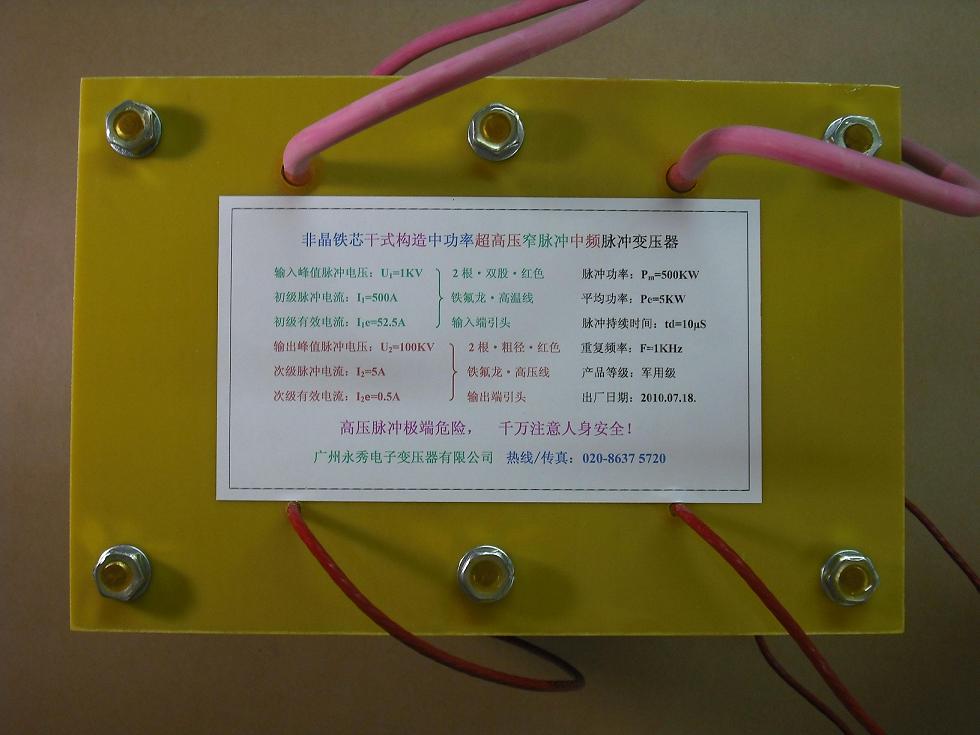 非晶铁芯干式构造中功率超高压窄脉冲中频脉冲变压器
输入峰值脉冲电压：U₁=1KV
初级脉冲电流：I₁=500A
初级有效电流：I₁e=52.5A
2根·双股·红色
铁氟龙·高温线
输入端引头
输出峰值脉冲电压：U₂=100KV
次级脉冲电流：I₂=5A
次级有效电流：I₂e=0.5A
2根·粗径·红色
铁氟龙·高压线
输出端引头
脉冲功率：Pm=500KW
平均功率：Pc=5KW
脉冲持续时间：td=10μS
重复频率：F=1KHz
产品等级：军用级
出厂日期：2010.07.18.
高压脉冲极端危险， 千万注意人身安全！
广州永秀电子变压器有限公司 热线/传真：020-8637 5720